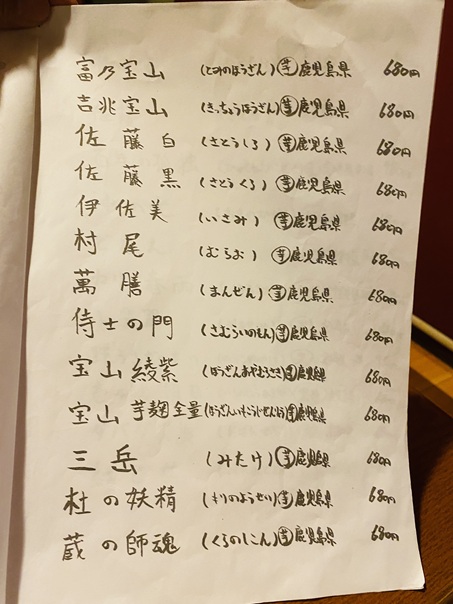 富乃宝山 (とみのほうざん) 芋 鹿児島県 680円
吉兆宝山 (きっちょうほうざん) 芋 鹿児島県 680円
佐藤白 (さとうしろ) 芋 鹿児島県 680円
佐藤黒 (さとうくろ) 芋 鹿児島県 680円
伊佐美 (いさみ) 芋 鹿児島県 680円
村尾 (むらお) 芋 鹿児島県 680円
萬膳 (まんぜん) 芋 鹿児島県 680円
侍士の門 (さむらいのもん) 芋 鹿児島県 680円
宝山 綾紫 (ほうざんあやむらさき) 芋 鹿児島県 680円
宝山 芋麹全量 (ほうざんいもこうじぜんりょう) 芋 鹿児島県 680円
三岳 (みたけ) 芋 鹿児島県 680円
杜の妖精 (もりのようせい) 芋 鹿児島県 680円
蔵の師魂 (くらのしこん) 芋 鹿児島県 680円